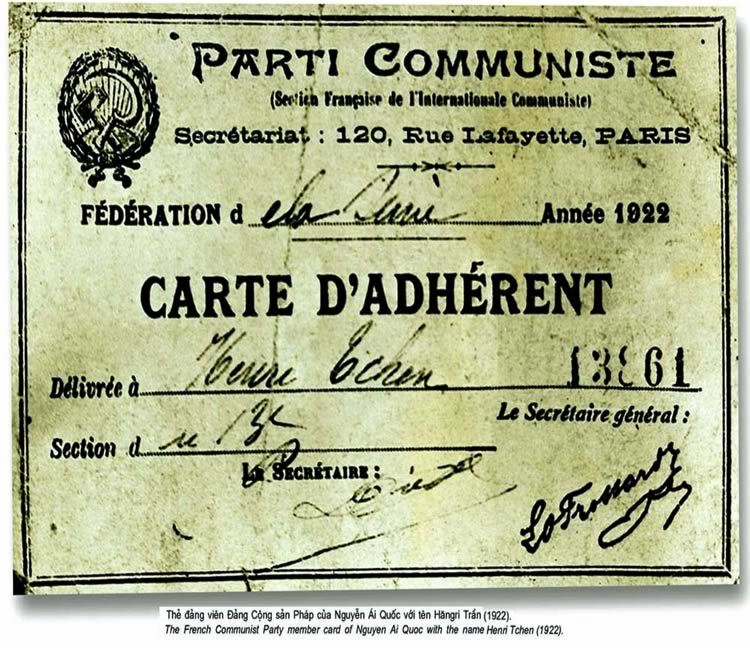 PARTI COMMUNISTE
(Section Française de l'Internationale Communiste)
Secrétariat : 120, Rue Lafayette, PARIS
FÉDÉRATION d e la Seine Année 1922
CARTE D'ADHÉRENT
Délivrée à Henri Tchen 13861
Le Secrétaire général :
Section d u 13e
LE SECRÉTAIRE :
LO Frossard
Thẻ đảng viên Đảng Cộng sản Pháp của Nguyễn Ái Quốc với tên Hăngri Trần (1922).
The French Communist Party member card of Nguyen Ai Quoc with the name Henri Tchen (1922).